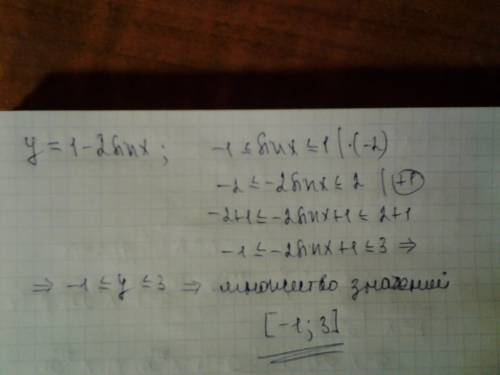 y = 1 - 2sinx; -1 ≤ sinx ≤ 1 | ·(-2)
-2 ≤ -2sinx ≤ 2 | +1
-2+1 ≤ -2sinx+1 ≤ 2+1
-1 ≤ -2sinx+1 ≤ 3 ⇒
⇒ -1 ≤ y ≤ 3 ⇒ множество значений
[-1; 3]